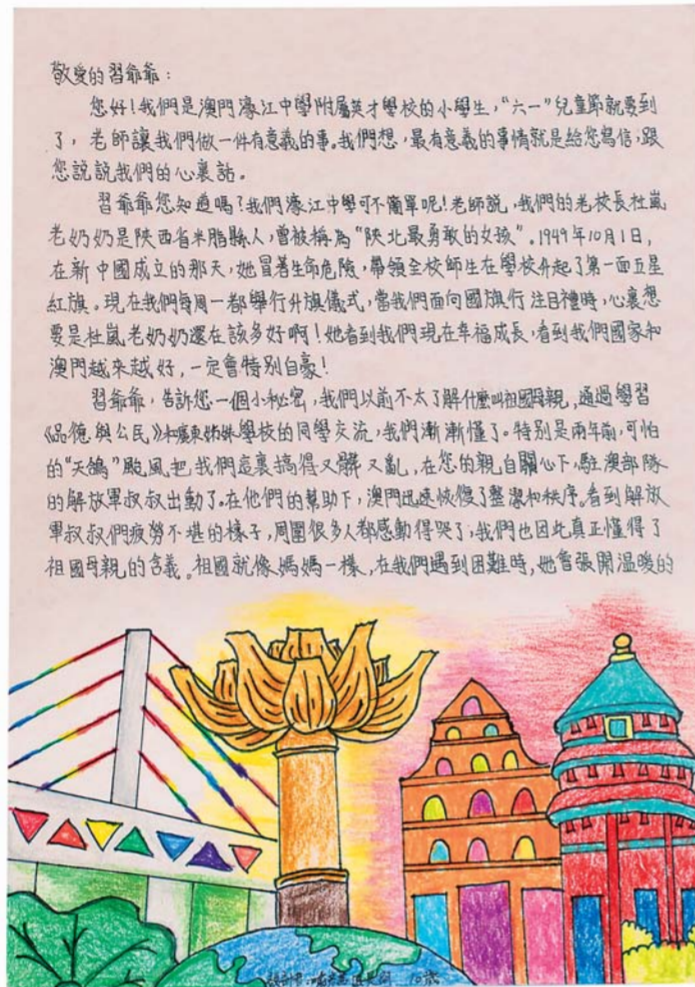 敬愛的習爺爺：
您好！我們是澳門濠江中學附屬英才學校的小學生，“六一”兒童節就要到
了，老師讓我們做一件有意義的事。我們想，最有意義的事情就是給您寫信，跟
您說說我們的心裏話。
習爺爺您知道嗎？我們濠江中學可不簡單呢！老師說，我們的老校長杜嵐
老奶奶是陝西省米脂縣人，曾被稱為“陝北最勇敢的女孩”。1949年10月1日，
在新中國成立的那天，她冒著生命危險，帶領全校師生在學校升起了第一面五星
紅旗。現在我們每周一都舉行升旗儀式，當我們面向國旗行注目禮時，心裏想
要是杜嵐老奶奶還在該多好啊！她看到我們現在幸福成長，看到我們國家和
澳門越來越好，一定會特別自豪！
習爺爺，告訴您一個小秘密，我們以前不太了解什麼叫祖國母親，通過學習
《品德與公民》和廣東姊妹學校的同學交流，我們漸漸懂了。特別是兩年前，可怕
的“天鴿”颱風把我們這裏搞得又髒又亂，在您的親自關心下，駐澳部隊
的解放軍叔叔出動了。在他們的幫助下，澳門迅速恢復了整潔和秩序。看到解放
軍叔叔們疲勞不堪的樣子，周圍很多人都感動得哭了，我們也因此真正懂得了
祖國母親的含義。祖國就像媽媽一樣，在我們遇到困難時，她會張開溫暖的
10歲